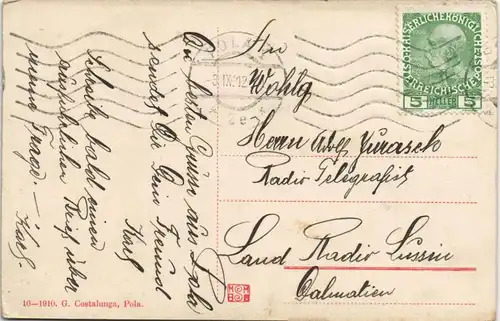 Die besten Grüsse aus Pola
sendet Dir Dein Freund
Karl
Schreibe bald einen
ausführlichen Brief über
meine Frage. —
Karl.
10—1910. G. Costalunga, Pola.
POLA
3.IX.12
KAISERLICHE KÖNIGLICHE
ÖSTERREICHISCHE POST
5 HELLER 5
An
Wohlg
Herrn Adolf Jurasek
Radio Telegrafist
Land Radio Lussin
Dalmatien